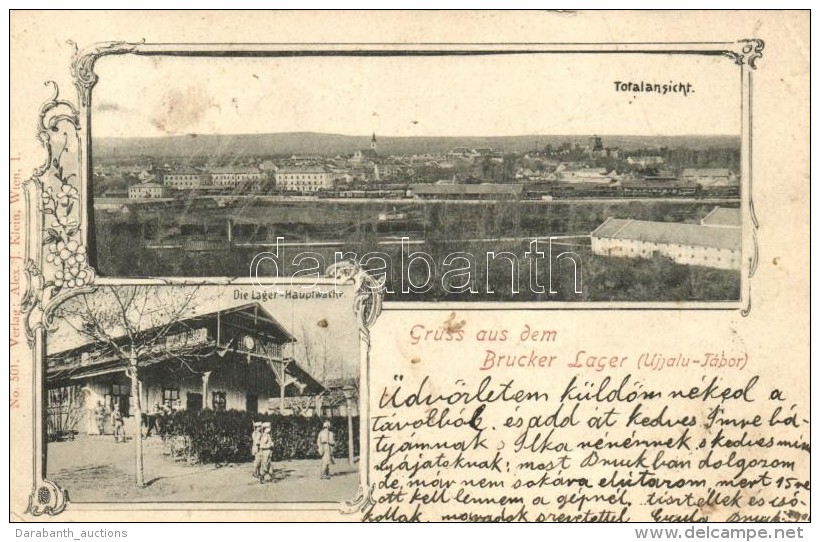 Totalansicht.
Die Lager-Hauptwache
darabanth
Gruss aus dem
Brucker Lager (Ujjalu-Tábor)
Üdvözletem küldöm néked a
távolból és add át kedves Imre bá-
tyámnak s Ilka nénémnek s kedves
nyájatoknak; most Bruckban dolgozom
de már nem sokára elútazom, mert 15
ott kell lennem a gépnél, tisztellek és csó-
kollak, maradok szeretettel
No. 501. Verlag Alex. J. Klein, Wien, I.
Darabanth_auctions
www.delcampe.net